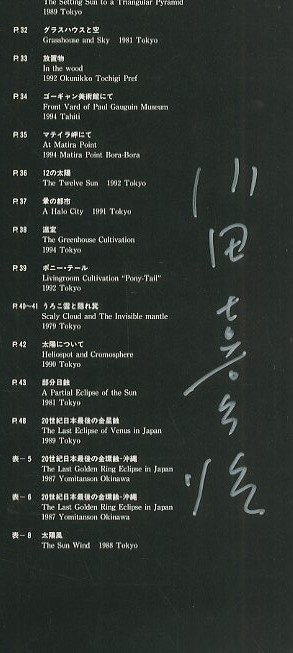 The Setting Sun to a Triangular Pyramid
1989 Tokyo
P.32 グラスハウスと空
Grasshouse and Sky 1981 Tokyo
P.33 放置物
In the wood
1992 Okunikko Tochigi Pref
P.34 ゴーギャン美術館にて
Front Vard of Paul Gauguin Museum
1994 Tahiti
P.35 マテイラ岬にて
At Matira Point
1994 Matira Point Bora-Bora
P.36 12の太陽
The Twelve Sun 1992 Tokyo
P.37 暈の都市
A Halo City 1991 Tokyo
P.38 温室
The Greenhouse Cultivation
1994 Tokyo
P.39 ポニー・テール
Livingroom Cultivation "Pony-Tail"
1992 Tokyo
P.40〜41 うろこ雲と隠れ蓑
Scaly Cloud and The Invisible mantle
1979 Tokyo
P.42 太陽について
Heliospot and Cromosphere
1990 Tokyo
P.43 部分日蝕
A Partial Eclipse of the Sun
1981 Tokyo
P.48 20世紀日本最後の金星蝕
The Last Eclipse of Venus in Japan
1989 Tokyo
表-5 20世紀日本最後の金環蝕・沖縄
The Last Golden Ring Eclipse in Japan
1987 Yomitanson Okinawa
表-6 20世紀日本最後の金環蝕・沖縄
The Last Golden Ring Eclipse in Japan
1987 Yomitanson Okinawa
表-8 太陽風
The Sun Wind 1988 Tokyo
川田